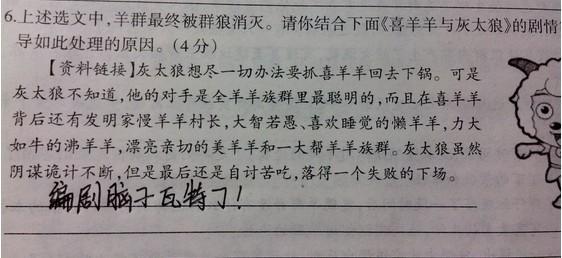 6.上述选文中,羊群最终被群狼消灭。请你结合下面《喜羊羊与灰太狼》的剧情
导如此处理的原因。(4分)
【资料链接】灰太狼想尽一切办法要抓喜羊羊回去下锅。可是
灰太狼不知道,他的对手是全羊羊族群里最聪明的,而且在喜羊羊
背后还有发明家慢羊羊村长,大智若愚、喜欢睡觉的懒羊羊,力大
如牛的沸羊羊,漂亮亲切的美羊羊和一大帮羊羊族群。灰太狼虽然
阴谋诡计不断,但是最后还是自讨苦吃,落得一个失败的下场。
编剧脑子瓦特了!